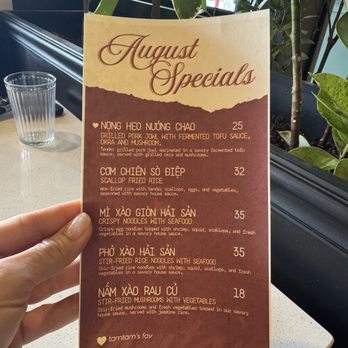 August
Specials
NỌNG HEO NƯỚNG CHAO 25
GRILLED PORK JOWL WITH FERMENTED TOFU SAUCE,
OKRA AND MUSHROOM.
Tender grilled pork jowl marinated in a savory fermented tofu
sauce, served with grilled okra and mushrooms.
CƠM CHIÊN SÒ ĐIỆP 32
SCALLOP FRIED RICE
Wok-fried rice with tender scallops, eggs, and vegetables,
seasoned with savory house sauce.
MÌ XÀO GIÒN HẢI SẢN 35
CRISPY NOODLES WITH SEAFOOD
Crispy egg noodles topped with shrimp, squid, scallops, and fresh
vegetables in a savory house sauce.
PHỞ XÀO HẢI SẢN 35
STIR-FRIED RICE NOODLES WITH SEAFOOD
Stir-fried rice noodles with shrimp, squid, scallops, and fresh
vegetables in a savory house sauce.
NẤM XÀO RAU CỦ 18
STIR-FRIED MUSHROOMS WITH VEGETABLES
Stir-fried mushrooms and fresh vegetables tossed in our savory
house sauce, served with jasmine rice.
tamtam's fav